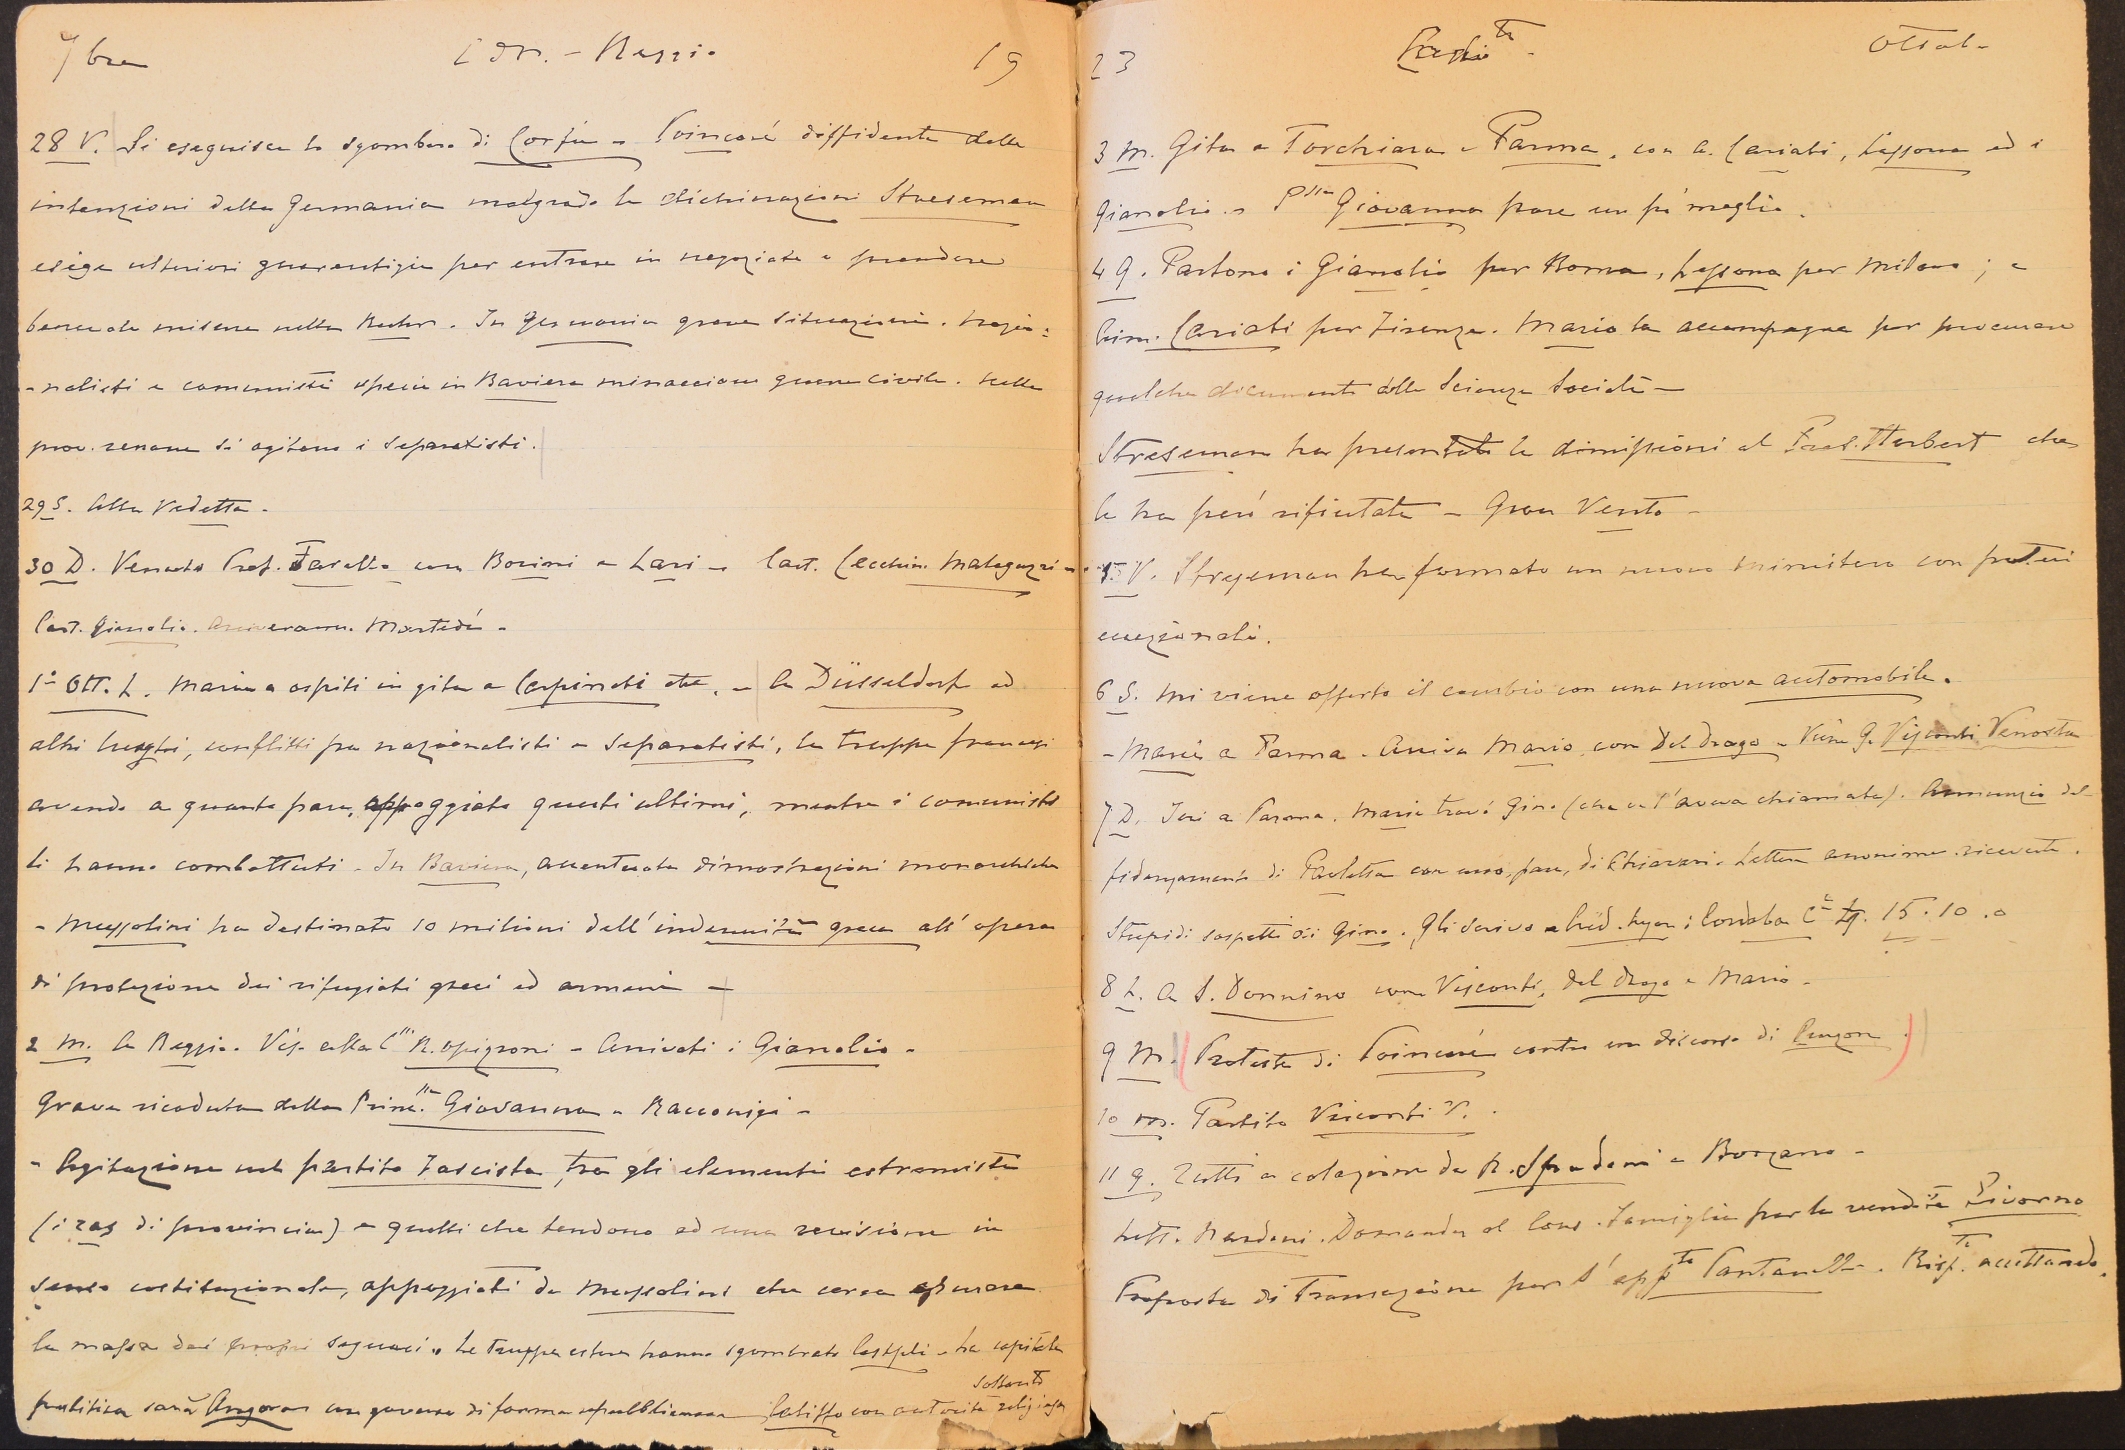 7bre - Reggio 19
28 V. Si eseguisce lo sgombero di Corfù - Poincaré diffidente delle
intenzioni della Germania malgrado le dichiarazioni Streseman
esige ulteriori guarentigie per entrare in negoziate e prendere
misure nella Ruhr. In Germania grave situazione. Nazio=
-nalisti e comunisti specie in Baviera minacciano guerra civile. Nelle
prov. renane si agitano i Separatisti.
29 S. Alla Vedetta -
30 D. Venuto Prof. con Borini e Lari - Cast. Malaguzzi -
Cast. Gianolio. Martedì -
1° Ott. L. Maria e ospiti in gita a Carpineti etc. - A Düsseldorf ed
altri luoghi, conflitti fra nazionalisti e Separatisti, le truppe francesi
avendo a quanto pare, appoggiato questi ultimi, mentre i comunisti
li hanno combattuti - In Baviera, accentuate dimostrazioni monarchiche
- Mussolini ha destinato 10 milioni dell'indennità greca all'opera
di protezione dei rifugiati greci ed armeni -
2 M. A Reggio. Vis. alla C.ssa R. Spigroni - Arrivati i Gianolio -
Grave ricaduta della Princ.ssa Giovanna - Racconigi -
- Agitazione nel partito Fascista, tra gli elementi estremisti
(i ras di provincia) e quelli che tendono ad una revisione in
senso costituzionale, appoggiati da Mussolini che cerca epurare
la massa dei propri seguaci. Le truppe estere hanno sgombrato Costpli - La capitale
politica sarà Angora con governo di forma repubblicana Califfo con autorità soltanto religiosa
23 Ottob.
3 M. Gita a Torchiara e Parma, con A. Cariati, Lessona ed i
Gianolio - P.ssa Giovanna pare un pò meglio.
4 G. Partono i Gianolio per Roma, Lessona per Milano; e
Cariati per Firenze. Mario la accompagna per procurare
qualche documenti delle Scienze Sociali -
Streseman ha presentato le dimissioni al Pres. Herbert che
le ha però rifiutate - Gran Vento -
5 V. Streseman ha formato un nuovo ministero con poteri
eccezionali.
6 S. Mi viene offerto il cambio con una nuova automobile.
- Maria a Parma. Arriva Mario con Del Drago - Viene G. Visconti Venosta
7 D. Ieri a Parma. Maria trovò Gino (che ve l'aveva chiamata). Annunzio del
fidanzamento di Paoletta con uno, pare, di Chiavari. Lettera anonima ricevuta.
Stupidi sospetti di Gino. Gli scrivo 15.10.0
8 L. A S. Donnino con Visconti, Del Drago e Mario -
9 M. (Proteste di Poincaré contro un discorso di Curzon.)
10 M. Partito Visconti V.
11 G. Tutti a colazione da R. Spadoni a Borzano -
Lett. Nardoni. Domanda al Cons. Famiglia per la vendita Livorno
Proposta di Transazione per l'app.to Pantanella. Risp. accettando.